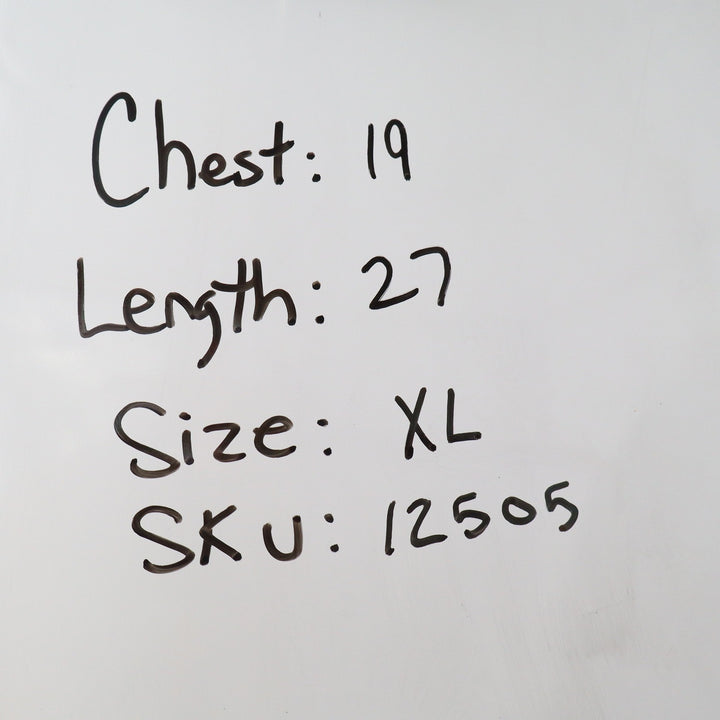 Chest: 19
Length: 27
Size: XL
SKU: 12505